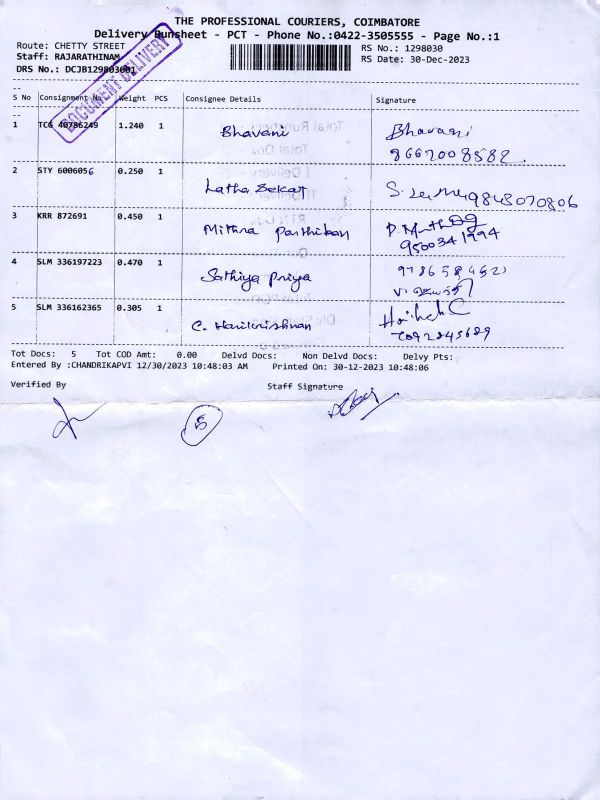 THE PROFESSIONAL COURIERS, COIMBATORE
Delivery Runsheet - PCT - Phone No.:0422-3505555 - Page No.:1
Route: CHETTY STREET
RS No.: 1298030
Staff: RAJARATHINAM
RS Date: 30-Dec-2023
DRS No.: DCJB129803001
DOCUMENT DELIVERY
S No Consignment No Weight PCS Consignee Details Signature
1 TCG 40786249 1.240 1 Bhavani Bhavani
8667008582
2 STY 6006056 0.250 1 Latha Sekar 9843070806
3 KRR 872691 0.450 1 Mithra Parthiban
9500341994
4 SLM 336197223 0.470 1 Sathiya Priya
5 SLM 336162365 0.305 1 C. Harikrishnan
Tot Docs: 5 Tot COD Amt: 0.00 Delvd Docs: Non Delvd Docs: Delvy Pts:
Entered By :CHANDRIKAPVI 12/30/2023 10:48:03 AM Printed On: 30-12-2023 10:48:06
Verified By Staff Signature
5